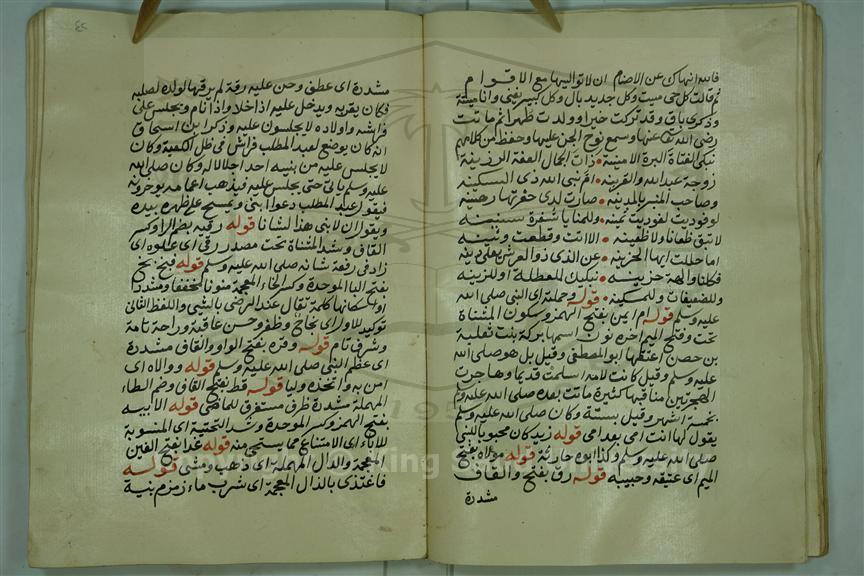 فالله انهاك عن الاصنام ان لا تواليها مع الاقوام
ثم قالت كل حي ميت وكل جديد بال وكل كبير يفنى وانا ميتة
وذكرى باق وقد تركت خيرا وولدت طهرا ثم ماتت
رضى الله تعا عنها وسمع نوح الجن عليها وحفظ من كلامهم
نبكى الفتاة البرة الامينة ذات الجمال العفة الرزينة
زوجة عبدالله والقرينة ام نبى الله ذى السكينة
وصاحب المنبر بالمدينة صارت لدى حفرتها رهينة
لو فوديت لفوديت ثمينة وللمنايا شفرة سنينة
لا تبق ظعانا ولا ظعينة الا اتت وقطعت وتينه
اما حللت ايها الحزينة عن الذى ذو العرش يعلى دينه
فكلنا والهة حزينة نبكيك للمعطلة او للزينه
وللضعيفات وللمسكينة قوله وحملته اى النبى صلى الله
عليه وسلم قوله ام ايمن بفتح الهمز وسكون المثناة
تحت وفتح الميم اخره نون اسمها بركة بنت ثعلبة
بن حصن اعتقها ابو المصطفى وقيل بل هو صلى الله
عليه وسلم وقيل كانت لامه اسلمت قديما وهاجرت
الهجرتين مناقبها كثيرة ماتت بعده صلى الله عليه وسلم
بخمسة اشهر وقيل بستة وكان صلى الله عليه وسلم
يقول لها انت امى بعد امى قوله زيد كان محبوبا للنبى
صلى الله عليه وسلم وكذا ابوه حارثة قوله مولاه بفتح
الميم اى عتيقه وحبيبه قوله رق بفتح والقاف
مشددة
مشددة اى عطف وحن عليه رقة لم يرقها لولده لصلبه
فكان يقربه ويدخل عليه اذا خلا واذا نام ويجلس على
فراشه واولاده لا يجلسون عليه وذكر ابن اسحاق
انه كان يوضع لعبد المطلب فراش فى ظل الكعبة وكان
لا يجلس عليه من بنيه احد اجلالا له وكان صلى الله
عليه وسلم ياتى حتى يجلس عليه فيذهب اعمامه يوخرونه
فيقول عبد المطلب دعوا ابنى ويمسح على ظهره بيده
ويقول ان لابنى هذا لشانا قوله رقيه بضم الرا وكسر
القاف وشد المثناة تحت مصدر رقى اى علوه اى
زاد فى رفعة شانه صلى الله عليه وسلم قوله فبخ بخ
بفتح البا الموحدة وكسر الخاء المعجمة منونا مخففا ومشددا
او اسكانها كلمة تقال عند الرضى بالشى واللفظ الثانى
توكيد للاول اى نجاح وظفر وحسن عاقبة وراحة تامة
وشرف تام قوله وقره بفتح الواو والقاف مشددة
اى عظم النبى صلى الله عليه وسلم قوله ووالاه اى
امن به واتخذه وليا قوله قط بفتح القاف وضم الطاء
المهملة مشددة ظرف مستغرق للماضى قوله الابيه
بفتح الهمز وكسر الموحدة وشد التحتية اى المنسوبة
للاباء اى الامتناع مما يستحى منه قوله غدا بفتح الغين
المعجمة والدال المهملة اى ذهب ومشى قوله
فاغتذى بالذال المعجمة اى شرب ماء زمزم بنية